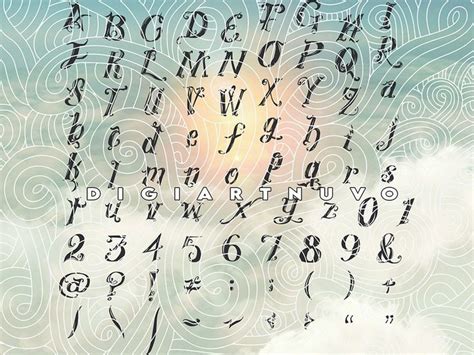 A B C D E F G H I
J K L M N O P Q R
S T U V W X Y Z a
b c d e f g h i j
k l m n o p q r s
DIGIARTNUVO
t u v w x y z 0 1
2 3 4 5 6 7 8 9 &
@ ? !